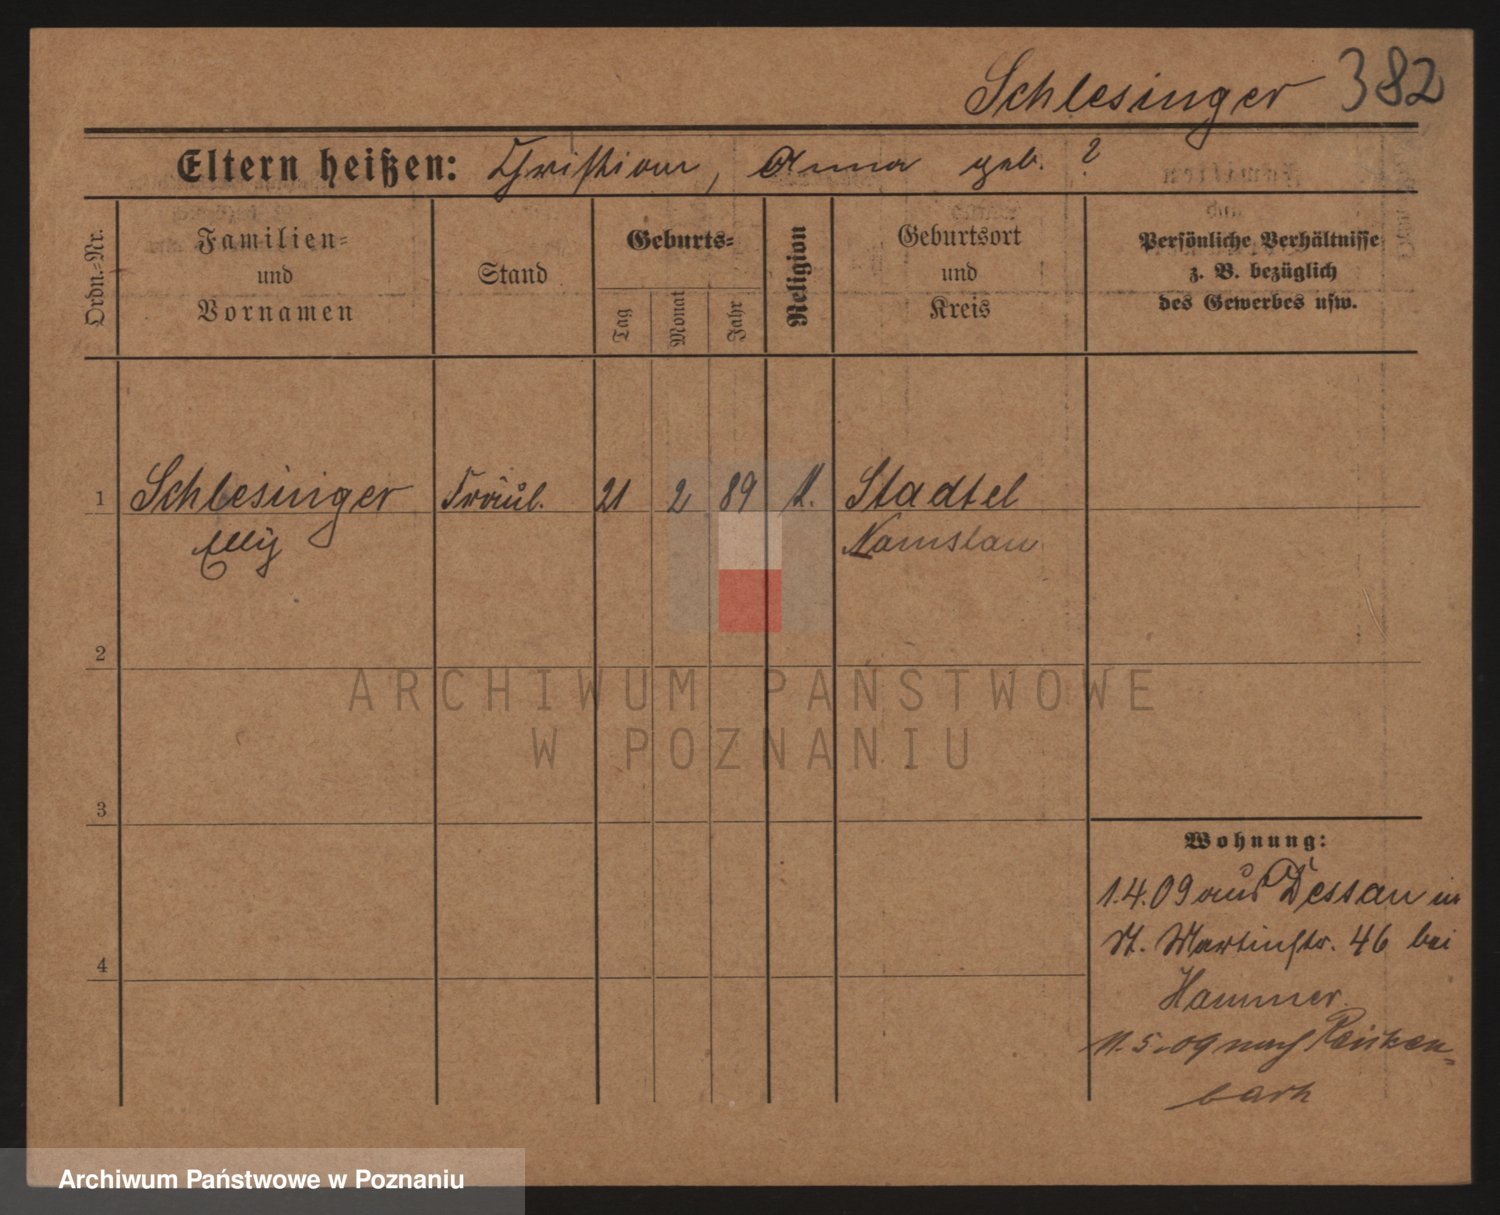 Schlesinger 382
Eltern heißen: Christian, Anna geb. ?
Ordn.-Nr.
Familien-
und
Vornamen
Stand
Geburts-
Tag
Monat
Jahr
Religion
Geburtsort
und
Kreis
Persönliche Verhältnisse
z. B. bezüglich
des Gewerbes usw.
1 Schlesinger Fräul. 21 2 89 Stadtel
Elly Namslau
2
ARCHIWUM PAŃSTWOWE
W POZNANIU
3
Wohnung:
1.4.09 aus Dessau in
St. Martinstr. 46 bei
4
Hammer.
11.5.09 nach
bach
Archiwum Państwowe w Poznaniu